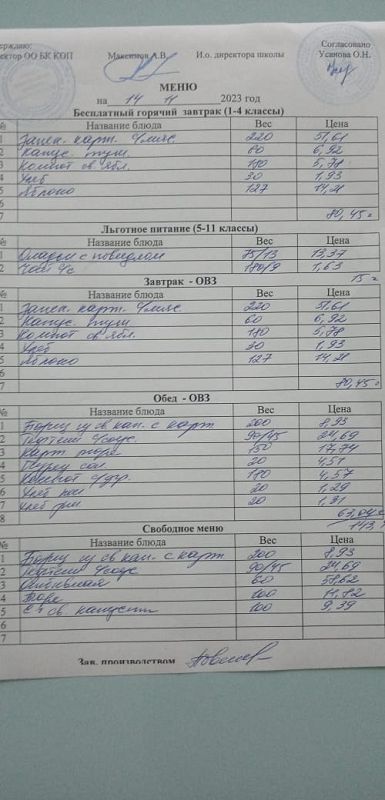 ерждаю: Согласовано
ектор ОО БК КОП Максимов А.В. И.о. директора школы Усанова О.Н.
МЕНЮ
на 14 11 2023 год
Бесплатный горячий завтрак (1-4 классы)
№ Название блюда Вес Цена
1 Запек. карт. 220 51,61
2 Капус. туш. 60 6,92
3 Компот св ябл. 180 5,78
4 Хлеб 30 1,93
5 Яблоко 127 14,21
6
7 80,45
Льготное питание (5-11 классы)
№ Название блюда Вес Цена
1 Оладьи с повидлом 75/13 13,37
2 Чай 180/9 1,63
15
Завтрак - ОВЗ
№ Название блюда Вес Цена
1 Запек. карт. 220 51,61
2 Капус. туш 60 6,92
3 Компот св ябл. 180 5,78
4 Хлеб 30 1,93
5 Яблоко 127 14,21
6
7 80,45
Обед - ОВЗ
№ Название блюда Вес Цена
1 Борщ из св кап. с карт 200 8,93
2 90/45 24,69
3 Карт пюре 150 17,74
4 Огурец сол 20 4,51
5 Компот 180 4,57
6 Хлеб пш 20 1,29
7 Хлеб рж 20 1,31
8 63,04
143,
Свободное меню
№ Название блюда Вес Цена
1 Борщ из св кап. с карт 200 8,93
2 90/45 24,69
3 60 58,62
4 Пюре 100 11,82
5 С-т св. капусты 100 9,39
6
7
Зав. производством